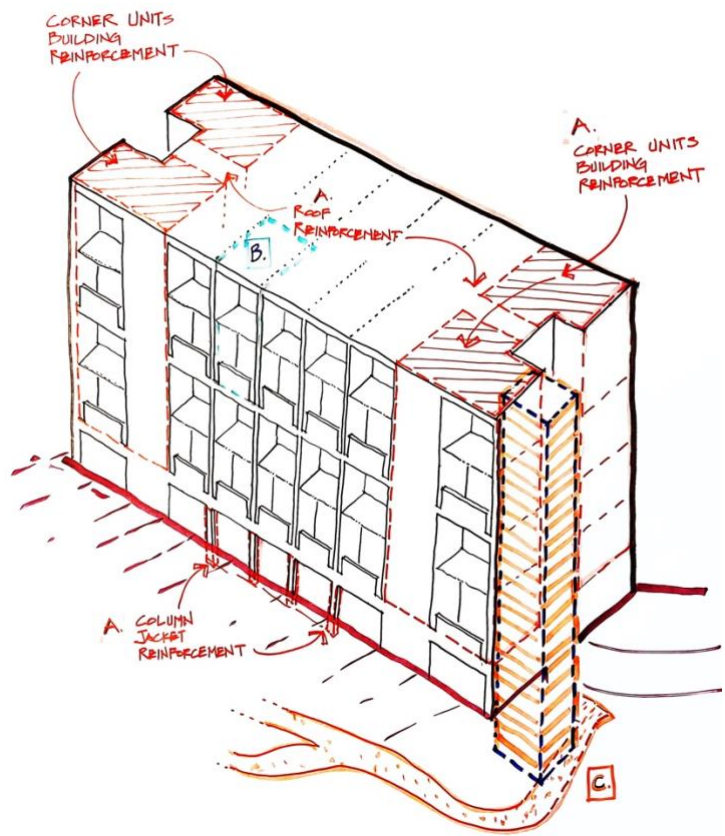 CORNER UNITS
BUILDING
REINFORCEMENT
A.
CORNER UNITS
BUILDING
REINFORCEMENT
A
ROOF
REINFORCEMENT
B.
A. COLUMN
JACKET
REINFORCEMENT
C.